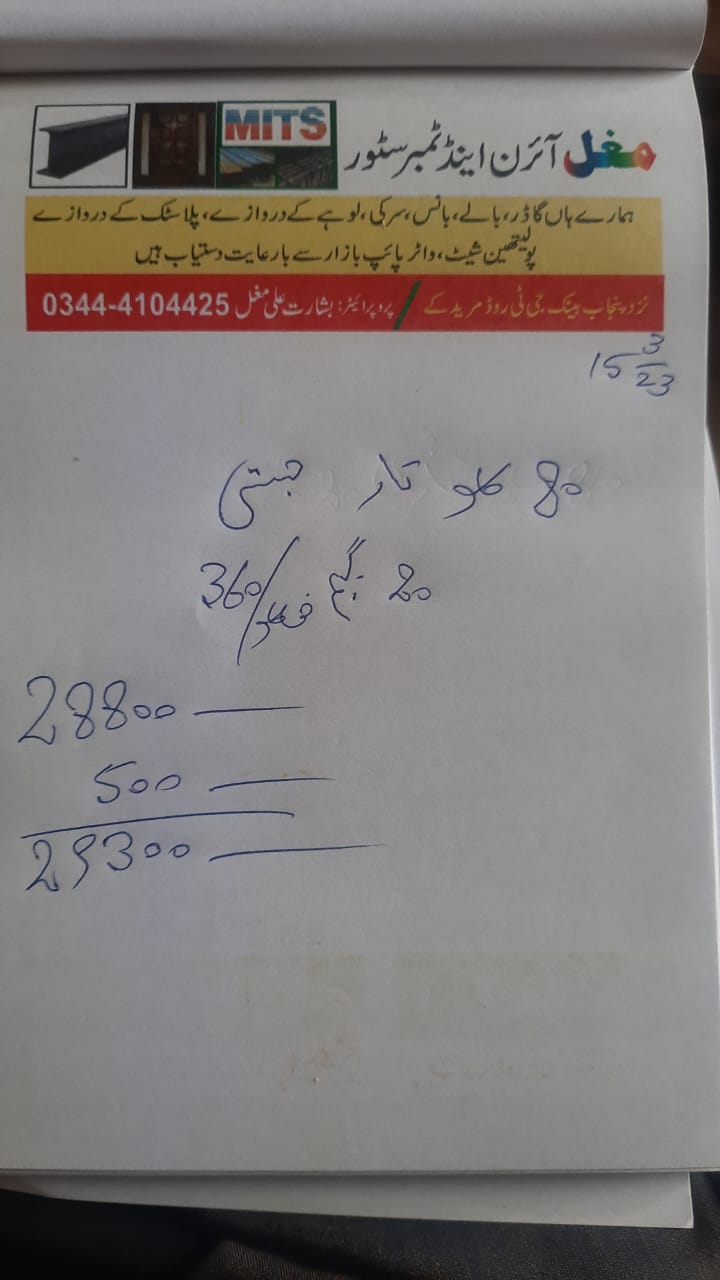 مغل آئرن اینڈ ٹمبر سٹور
MITS
ہمارے ہاں گاڈر، بالے، بانس، سرکی، لوہے کے دروازے، پلاسٹک کے دروازے
پولیتھین شیٹ، واٹر پائپ بازار سے بارعایت دستیاب ہیں
نزد پنجاب بینک جی ٹی روڈ مریدکے / پروپرائیٹر: بشارت علی مغل 0344-4104425
15 3/23
80 کلو تار جستی
20 گیج فی کلو /360
28800
500
29300